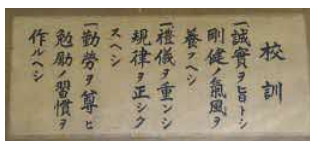 校訓
一誠實ヲ旨トシ
剛健ノ氣風ヲ
養フヘシ
一禮儀ヲ重ンシ
規律ヲ正シク
スヘシ
一勤勞ヲ尊ヒ
勉勵ノ習慣ヲ
作ルヘシ